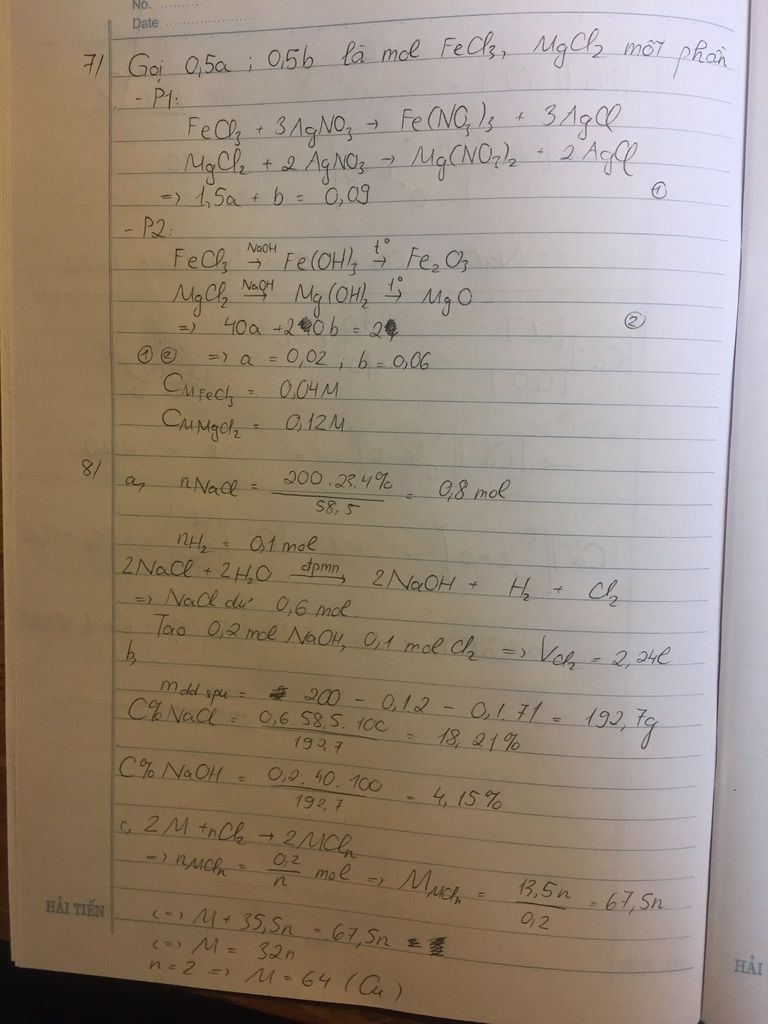 No.
Date
7/ Gọi 0,5a ; 0,5b là mol FeCl₃, MgCl₂ mỗi phần
- P1:
FeCl₃ + 3AgNO₃ → Fe(NO₃)₃ + 3AgCl
MgCl₂ + 2AgNO₃ → Mg(NO₃)₂ + 2AgCl
=> 1,5a + b = 0,09 ①
- P2:
FeCl₃ →(NaOH) Fe(OH)₃ →(t°) Fe₂O₃
MgCl₂ →(NaOH) Mg(OH)₂ →(t°) MgO
=> 40a + 20b = 2 ②
① ② => a = 0,02 ; b = 0,06
CM FeCl₃ = 0,04M
CM MgCl₂ = 0,12M
8/ a, nNaCl = 200.23,4% / 58,5 = 0,8 mol
nH₂ = 0,1 mol
2NaCl + 2H₂O →(dpmn) 2NaOH + H₂ + Cl₂
=> NaCl dư 0,6 mol
Tạo 0,2 mol NaOH, 0,1 mol Cl₂ => VCl₂ = 2,24l
b,
mdd spu = 200 - 0,1.2 - 0,1.71 = 192,7g
C%NaCl = 0,6.58,5.100 / 192,7 = 18,21%
C%NaOH = 0,2.40.100 / 192,7 = 4,15%
c, 2M + nCl₂ → 2MClₙ
=> nMClₙ = 0,2/n mol => MMClₙ = 13,5n / 0,2 = 67,5n
<=> M + 35,5n = 67,5n
<=> M = 32n
n = 2 => M = 64 (Cu)
HẢI TIẾN
HẢI